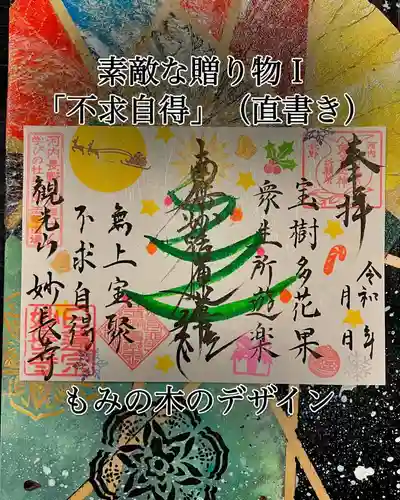 素敵な贈り物Ⅰ
「不求自得」（直書き）
奉拝
令和 年
月 日
宝樹多花果
衆生所遊楽
南無妙法蓮華経
無上宝聚
不求自得
観光山妙長寺
もみの木のデザイン